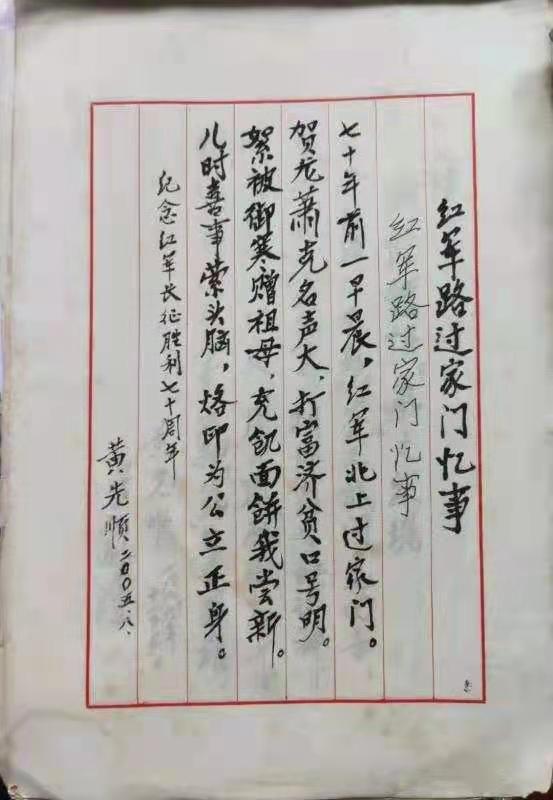 红军路过家门忆事
红军路过家门忆事
七十年前一早晨，红军北上过家门。
贺龙萧克名声大，打富济贫口号明。
絮被御寒赠祖母，充饥面饼我尝新。
儿时喜事萦头脑，烙印为公立正身。
纪念红军长征胜利七十周年
黄先顺二〇〇五.八.